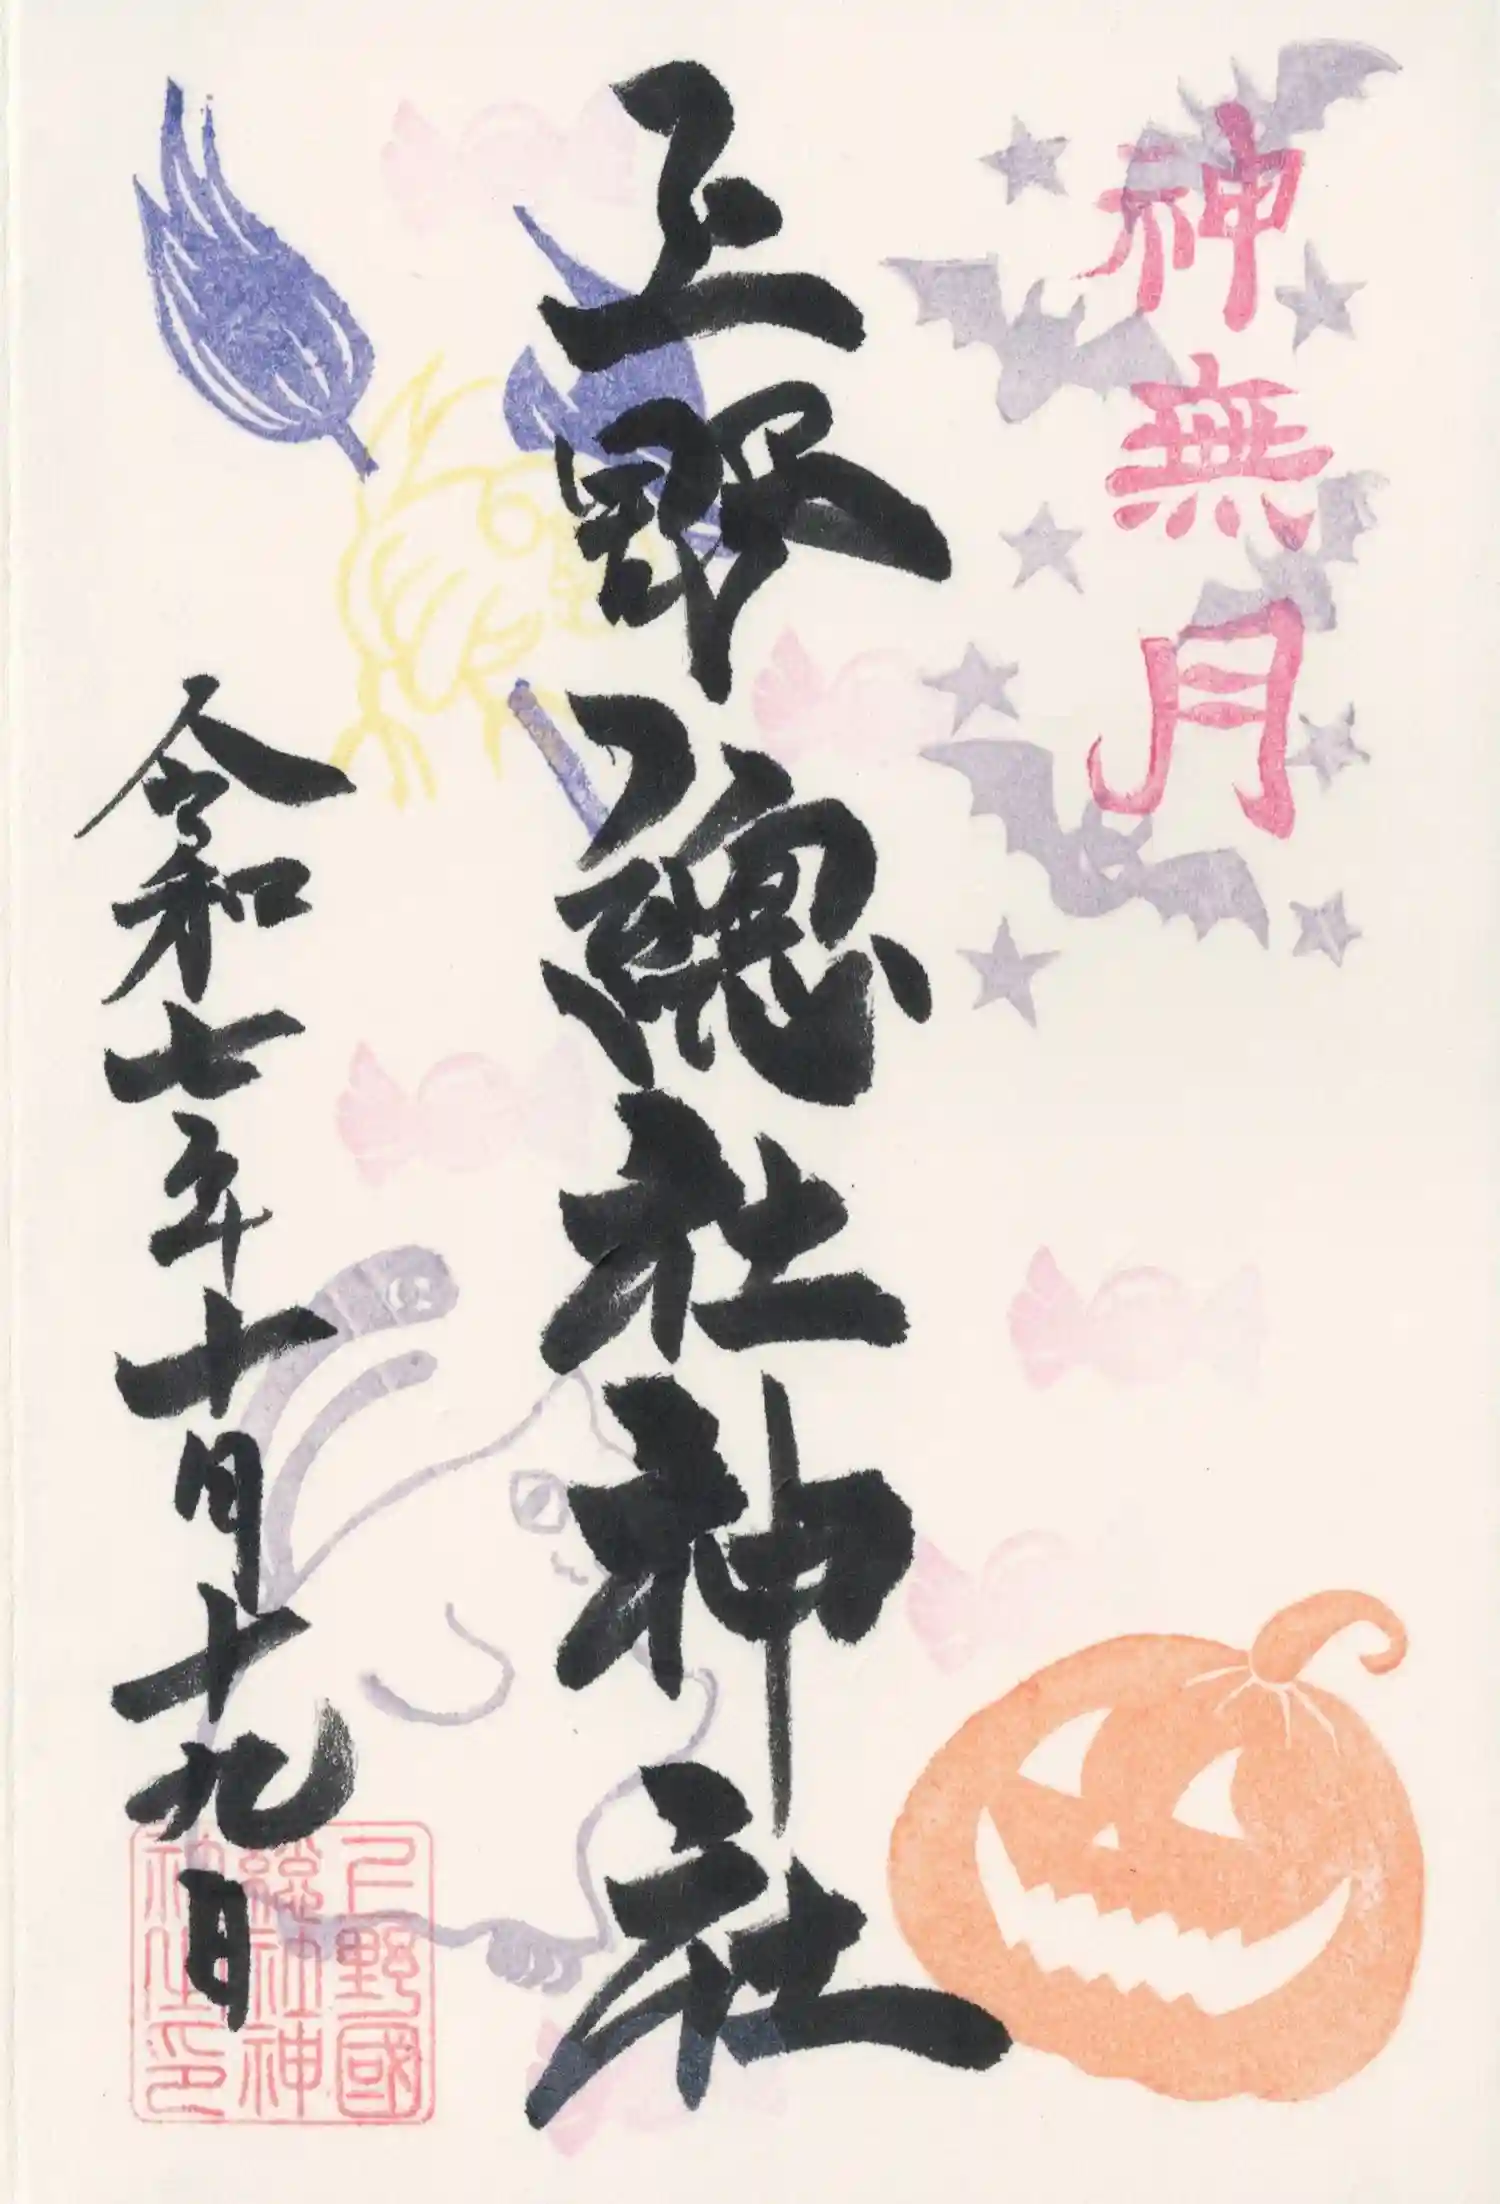 神無月
上野總社神社
令和七年十月十九日
上野國
総社神
社之印